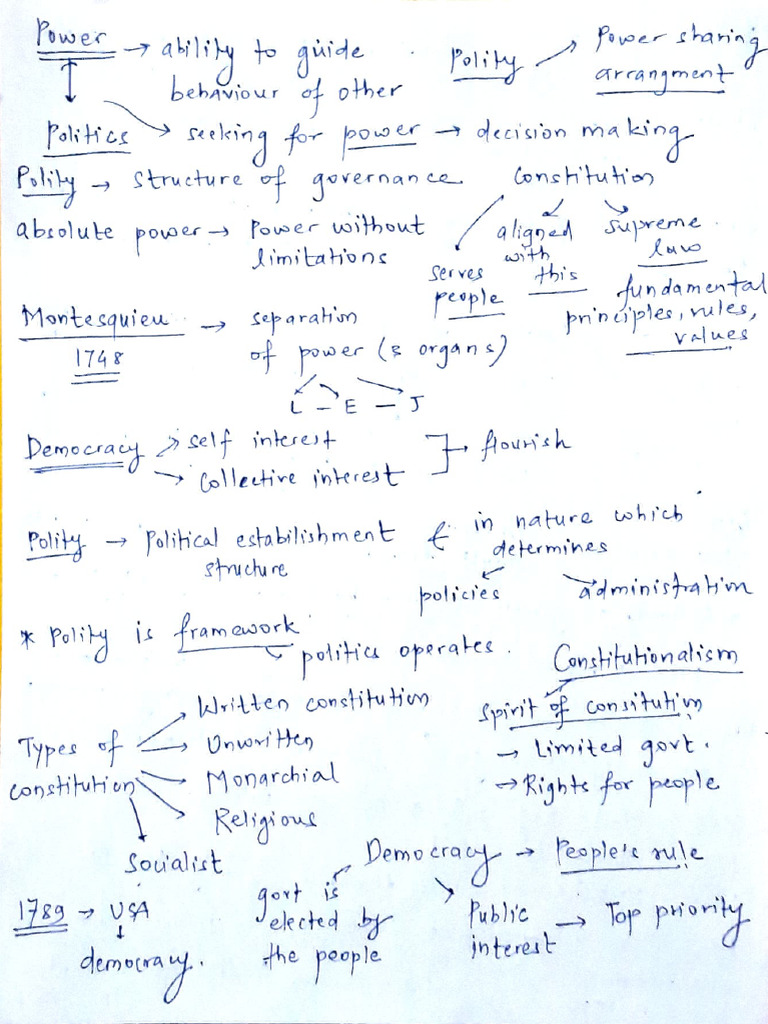 Power → ability to guide
behaviour of other
Polity → Power sharing
arrangment
Politics → seeking for power → decision making
Polity → Structure of governance
absolute power → Power without
limitations
Constitution
serves
people
aligned
with
this
supreme
law
fundamental
principles, rules,
values
Montesquieu → separation
1748
of power (3 organs)
L - E - J
Democracy → self interest
→ Collective interest
] → flourish
Polity → Political estabilishment
structure
& in nature which
determines
policies
administration
* Polity is framework
politics operates.
Constitutionalism
Spirit of consitution
→ Limited govt.
→ Rights for people
Types of
constitution
Written constitution
Unwritten
Monarchial
Religious
Socialist
Democracy → People's rule
govt is
elected by
the people
Public
interest → Top priority
1789 → USA
↓
democracy.